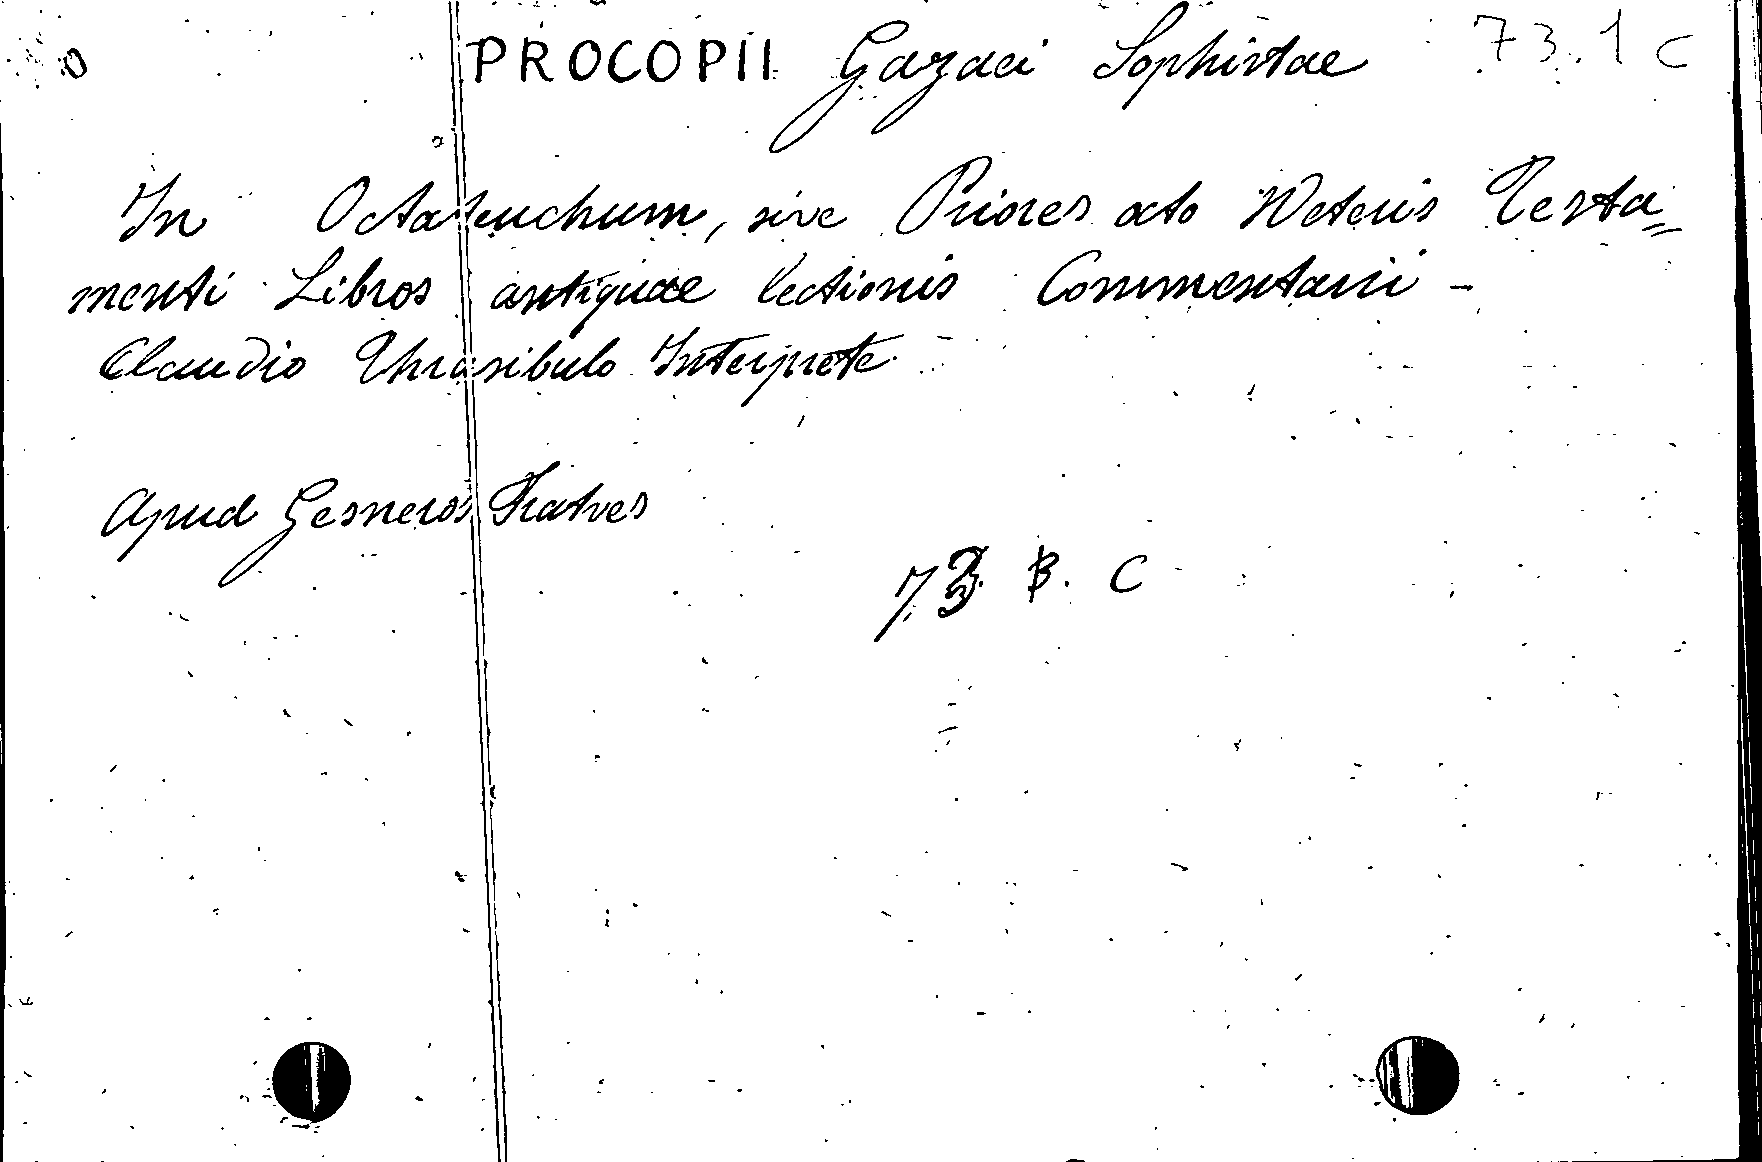 PROCOPII Gazaei Sophistae 73.1 C
In Octateuchum, sive Priores octo Veteris Testa=
menti Libros antiquae lectionis Commentarii -
Claudio Thrasibulo Interprete
Apud Gesneros Fratres
73 B. C